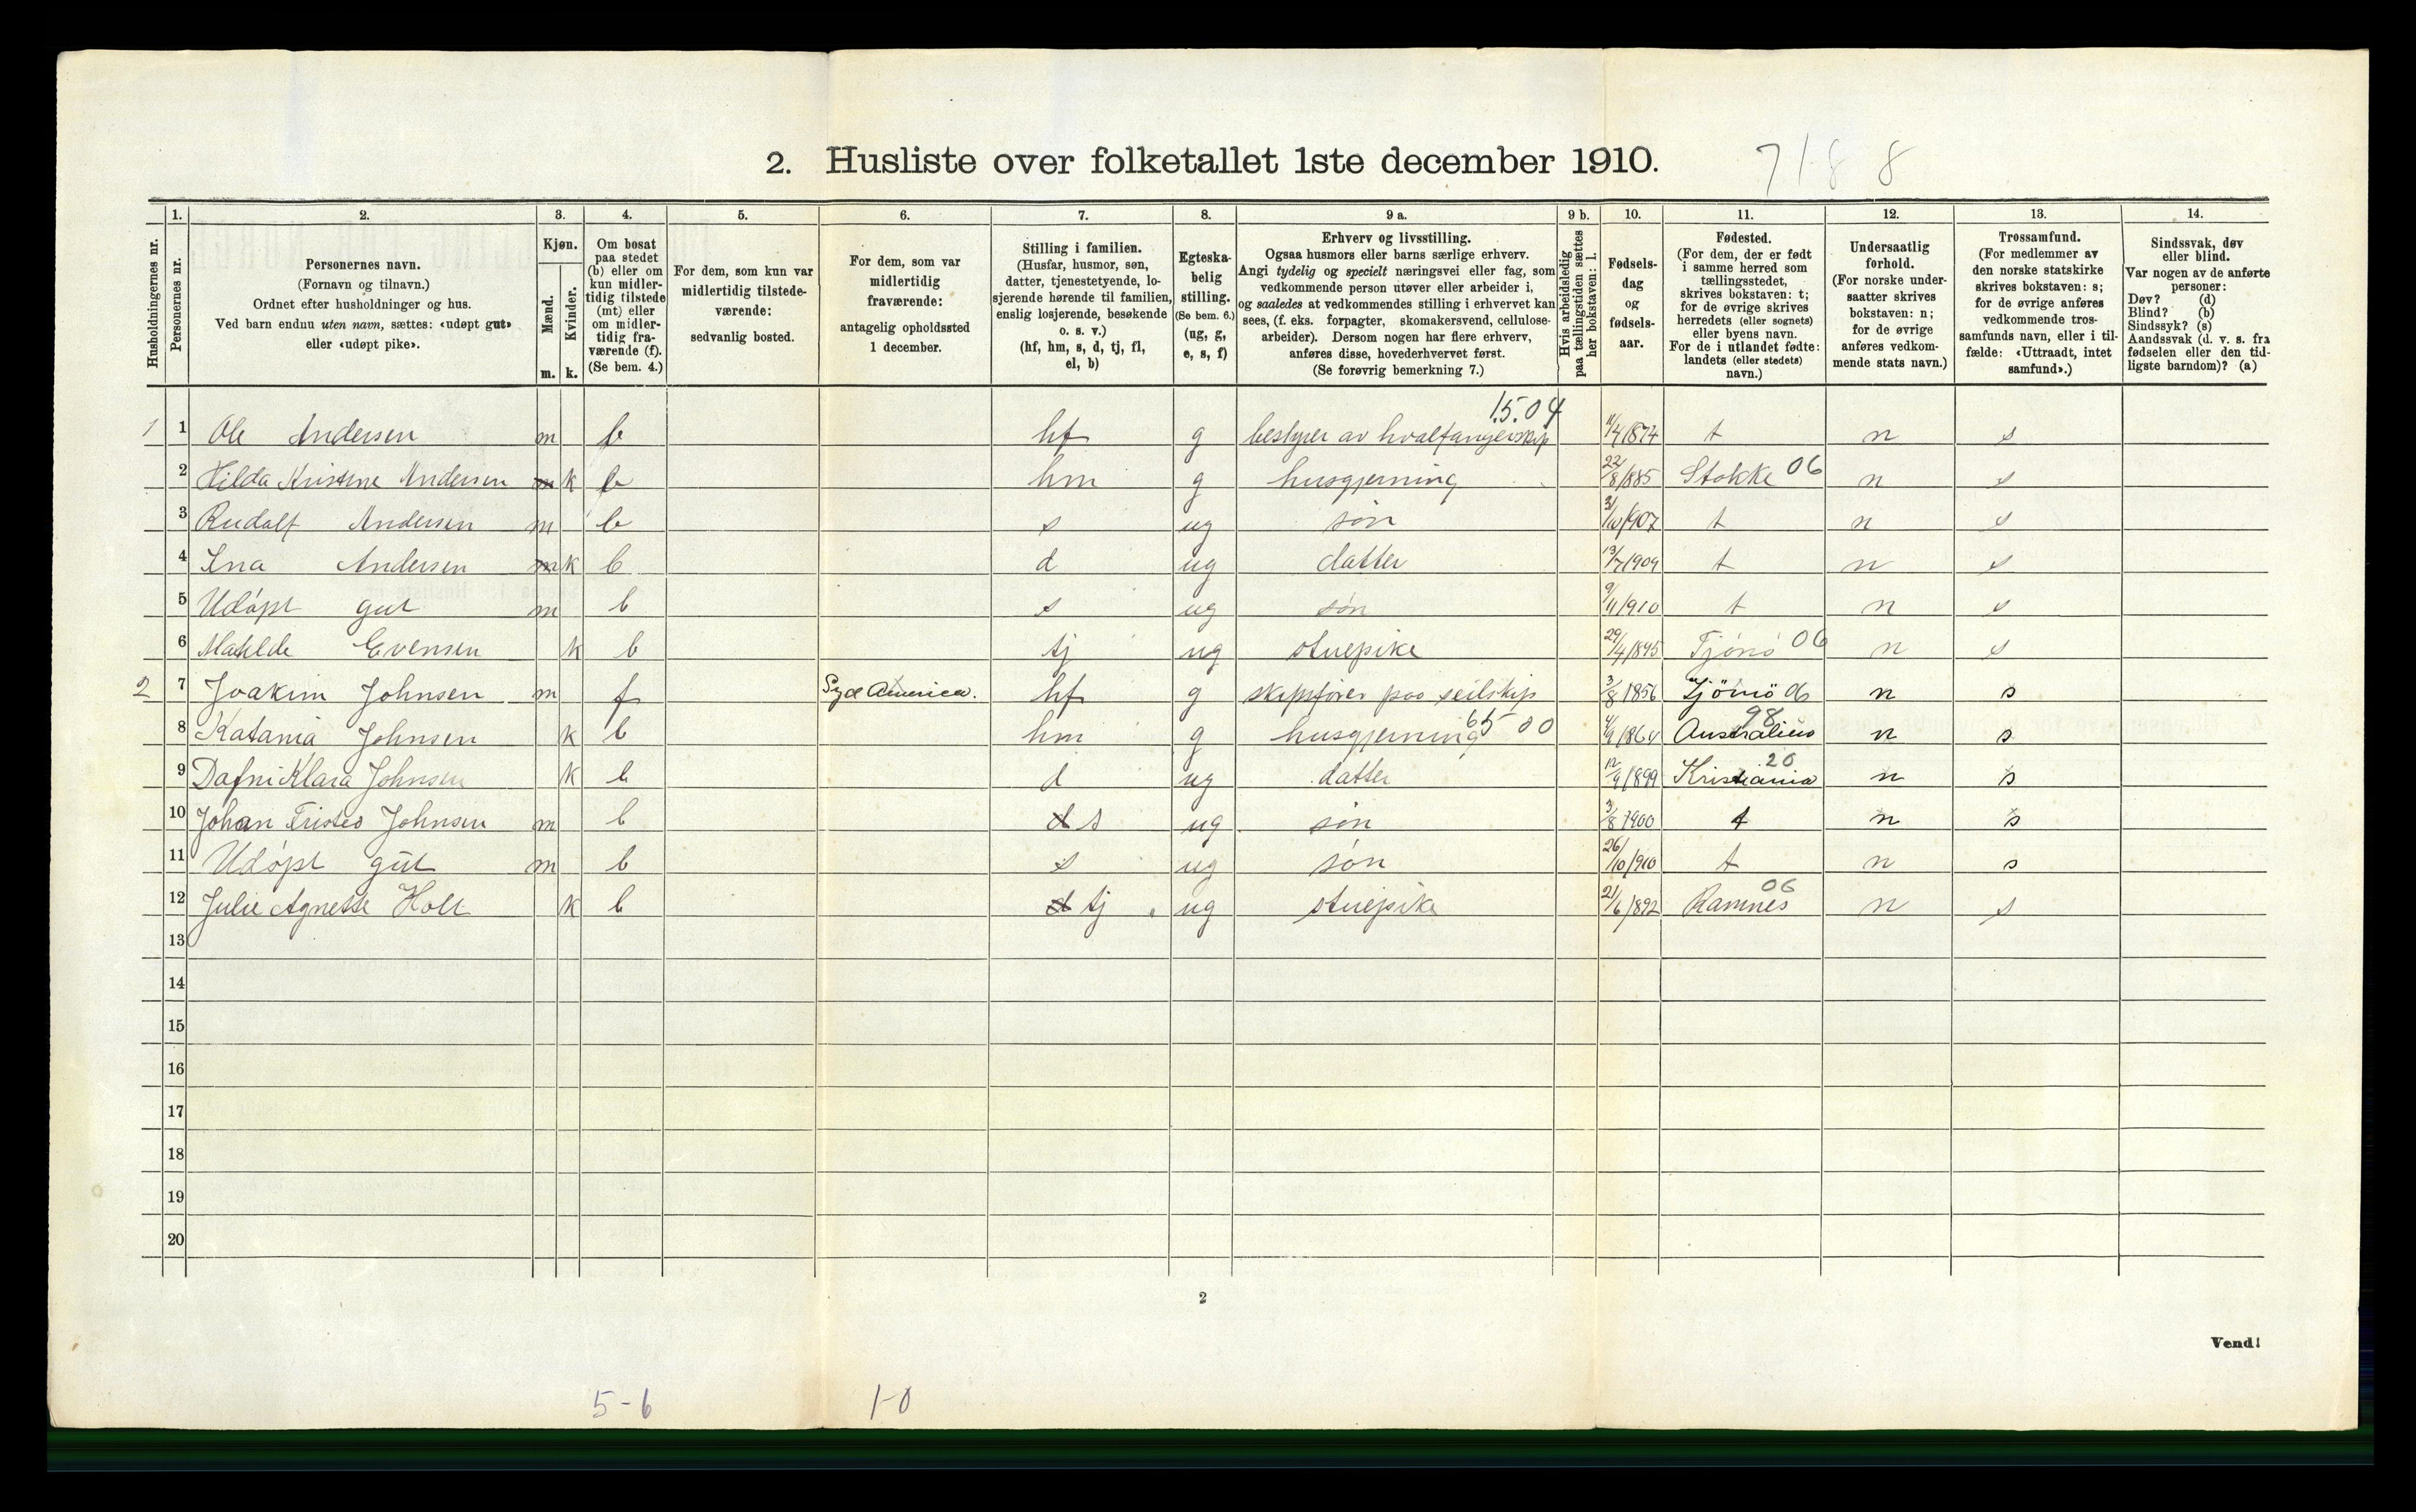 2. Husliste over folketallet 1ste december 1910. 7188
Husholdningernes nr.
1. Personernes nr.
2. Personernes navn.
(Fornavn og tilnavn.)
Ordnet efter husholdninger og hus.
Ved barn endnu uten navn, sættes: «udøpt gut»
eller «udøpt pike».
3. Kjøn.
Mænd. m.
Kvinder. k.
4. Om bosat
paa stedet
(b) eller om
kun midler-
tidig tilstede
(mt) eller
om midler-
tidig fra-
værende (f).
(Se bem. 4.)
5. For dem, som kun var
midlertidig tilstede-
værende:
sedvanlig bosted.
6. For dem, som var
midlertidig
fraværende:
antagelig opholdssted
1 december.
7. Stilling i familien.
(Husfar, husmor, søn,
datter, tjenestetyende, lo-
sjerende hørende til familien,
enslig losjerende, besøkende
o. s. v.)
(hf, hm, s, d, tj, fl,
el, b)
8. Egteska-
belig
stilling.
(Se bem. 6.)
(ug, g,
e, s, f)
9 a. Erhverv og livsstilling.
Ogsaa husmors eller barns særlige erhverv.
Angi tydelig og specielt næringsvei eller fag, som
vedkommende person utøver eller arbeider i,
og saaledes at vedkommendes stilling i erhvervet kan
sees, (f. eks. forpagter, skomakersvend, cellulose-
arbeider). Dersom nogen har flere erhverv,
anføres disse, hovederhvervet først.
(Se forøvrig bemerkning 7.)
9 b. Hvis arbeidsledig
paa tællingstiden sættes
her bokstaven: l.
10. Fødsels-
dag
og
fødsels-
aar.
11. Fødested.
(For dem, der er født
i samme herred som
tællingsstedet,
skrives bokstaven: t;
for de øvrige skrives
herredets (eller sognets)
eller byens navn.
For de i utlandet fødte:
landets (eller stedets)
navn.)
12. Undersaatlig
forhold.
(For norske under-
saatter skrives
bokstaven: n;
for de øvrige
anføres vedkom-
mende stats navn.)
13. Trossamfund.
(For medlemmer av
den norske statskirke
skrives bokstaven: s;
for de øvrige anføres
vedkommende tros-
samfunds navn, eller i til-
fælde: «Uttraadt, intet
samfund».)
14. Sindssvak, døv
eller blind.
Var nogen av de anførte
personer:
Døv? (d)
Blind? (b)
Sindssyk? (s)
Aandssvak (d. v. s. fra
fødselen eller den tid-
ligste barndom)? (a)
15.04
1 1 Ole Andersen m b hf g bestyrer av hvalfangerskip 11/4 1874 t n s
2 Hilda Kristine Andersen m k b hm g husgjerning 22/8 1885 Stokke 06 n s
3 Rudolf Andersen m b s ug søn 31/10 1907 t n s
4 Ina Andersen m k b d ug datter 13/7 1909 t n s
5 Udøpt gut m b s ug søn 9/11 1910 t n s
6 Matilde Evensen k b tj ug stuepike 29/4 1895 Tjømø 06 n s
2 7 Joakim Johnsen m f Syd America. hf g skipsfører paa seilskip 3/8 1856 Tjömö 06 n s
8 Katania Johnsen k b hm g husgjerning 65 00 1864 Australien 98 n s
9 Dafni Klara Johnsen k b d ug datter 12/9 1899 Kristiania 20 n s
10 Johan Johnsen m b d s ug søn 3/8 1900 t n s
11 Udøpt gut m b s ug søn 26/10 1910 t n s
12 Julie Agnette Holt k b d tj ug stuepike 21/6 1892 Ramnes 06 n s
13
14
15
16
17
18
19
20
2
Vend!
5-6 1-0